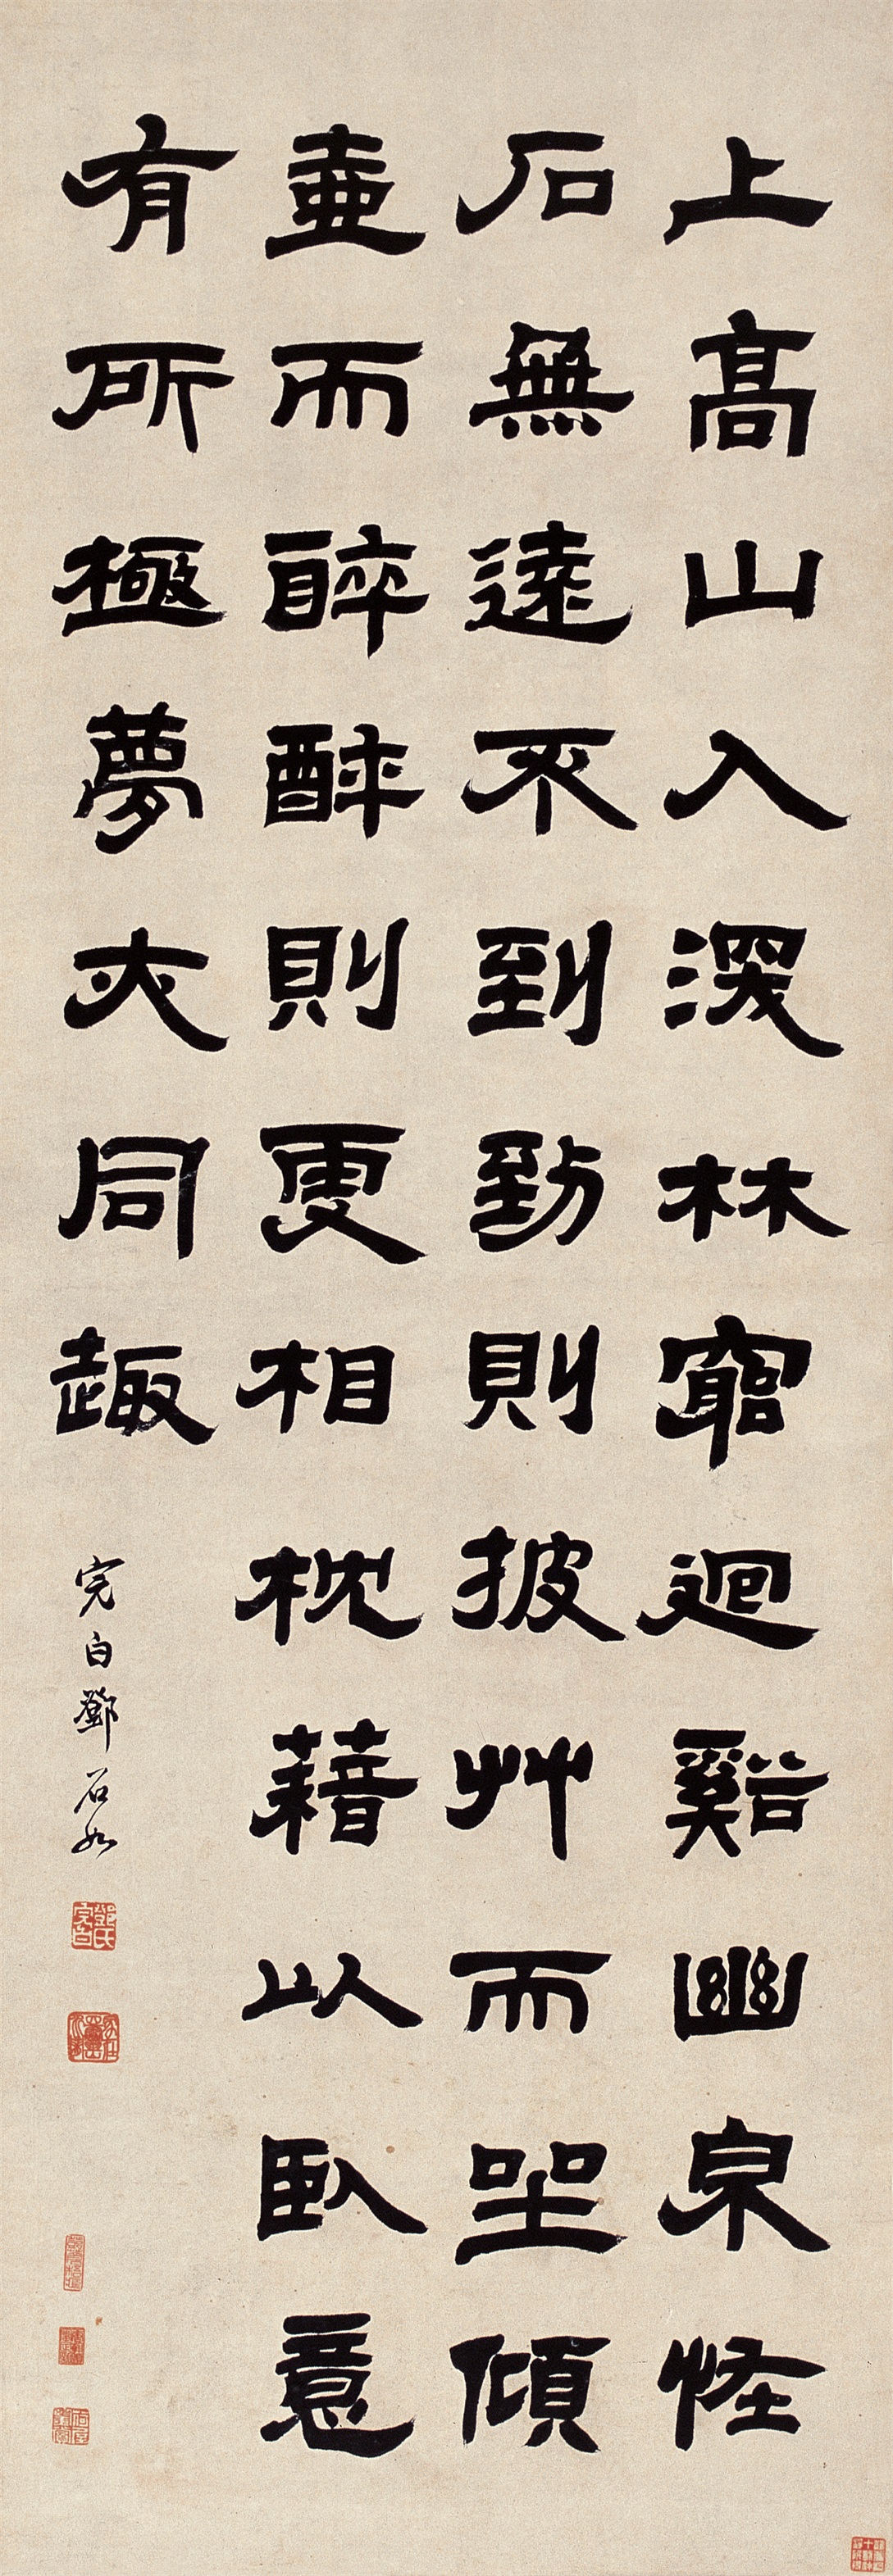 上髙山入深林窮迴谿幽泉怪
石無遠不到到則披艸而坐傾
壺而醉醉則更相枕藉以臥意
有所極夢亦同趣
完白鄧石如
鄧氏完白